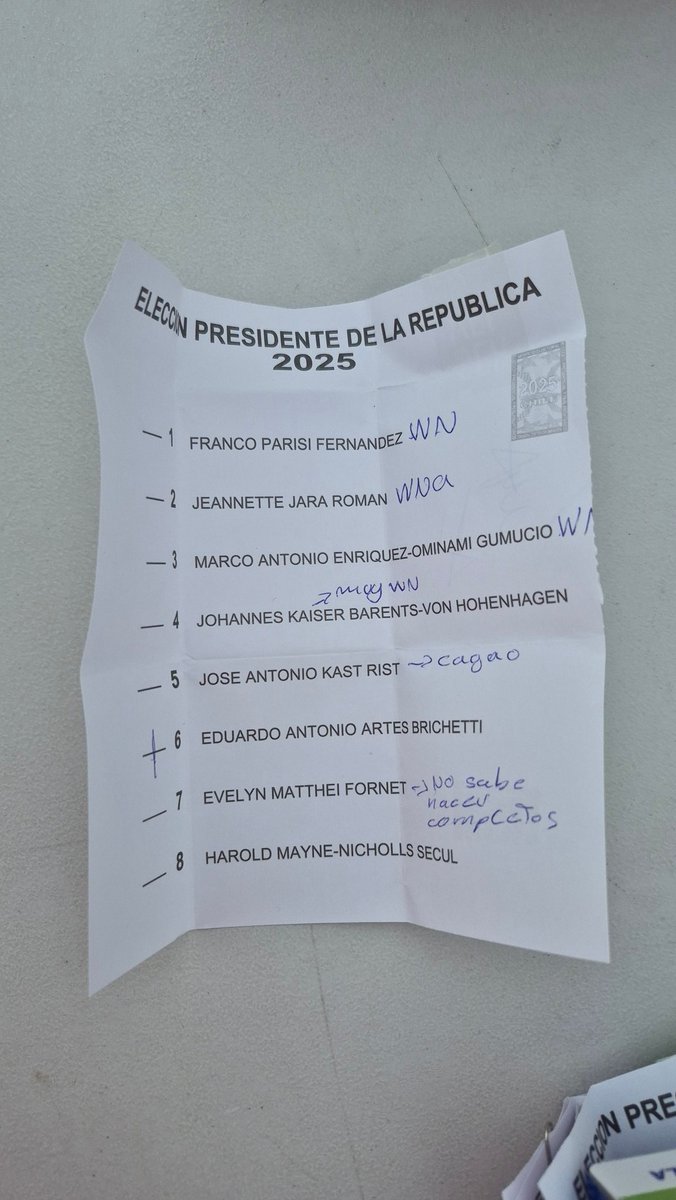 ELECCION PRESIDENTE DE LA REPUBLICA
2025
2025
CHILE
1 FRANCO PARISI FERNANDEZ WN
2 JEANNETTE JARA ROMAN WNa
3 MARCO ANTONIO ENRIQUEZ-OMINAMI GUMUCIO WN
→ muy WN
4 JOHANNES KAISER BARENTS-VON HOHENHAGEN
5 JOSE ANTONIO KAST RIST → cagao
6 EDUARDO ANTONIO ARTES BRICHETTI
7 EVELYN MATTHEI FORNET → No sabe
hacer
completos
8 HAROLD MAYNE-NICHOLLS SECUL
ELECCION PRE
LA